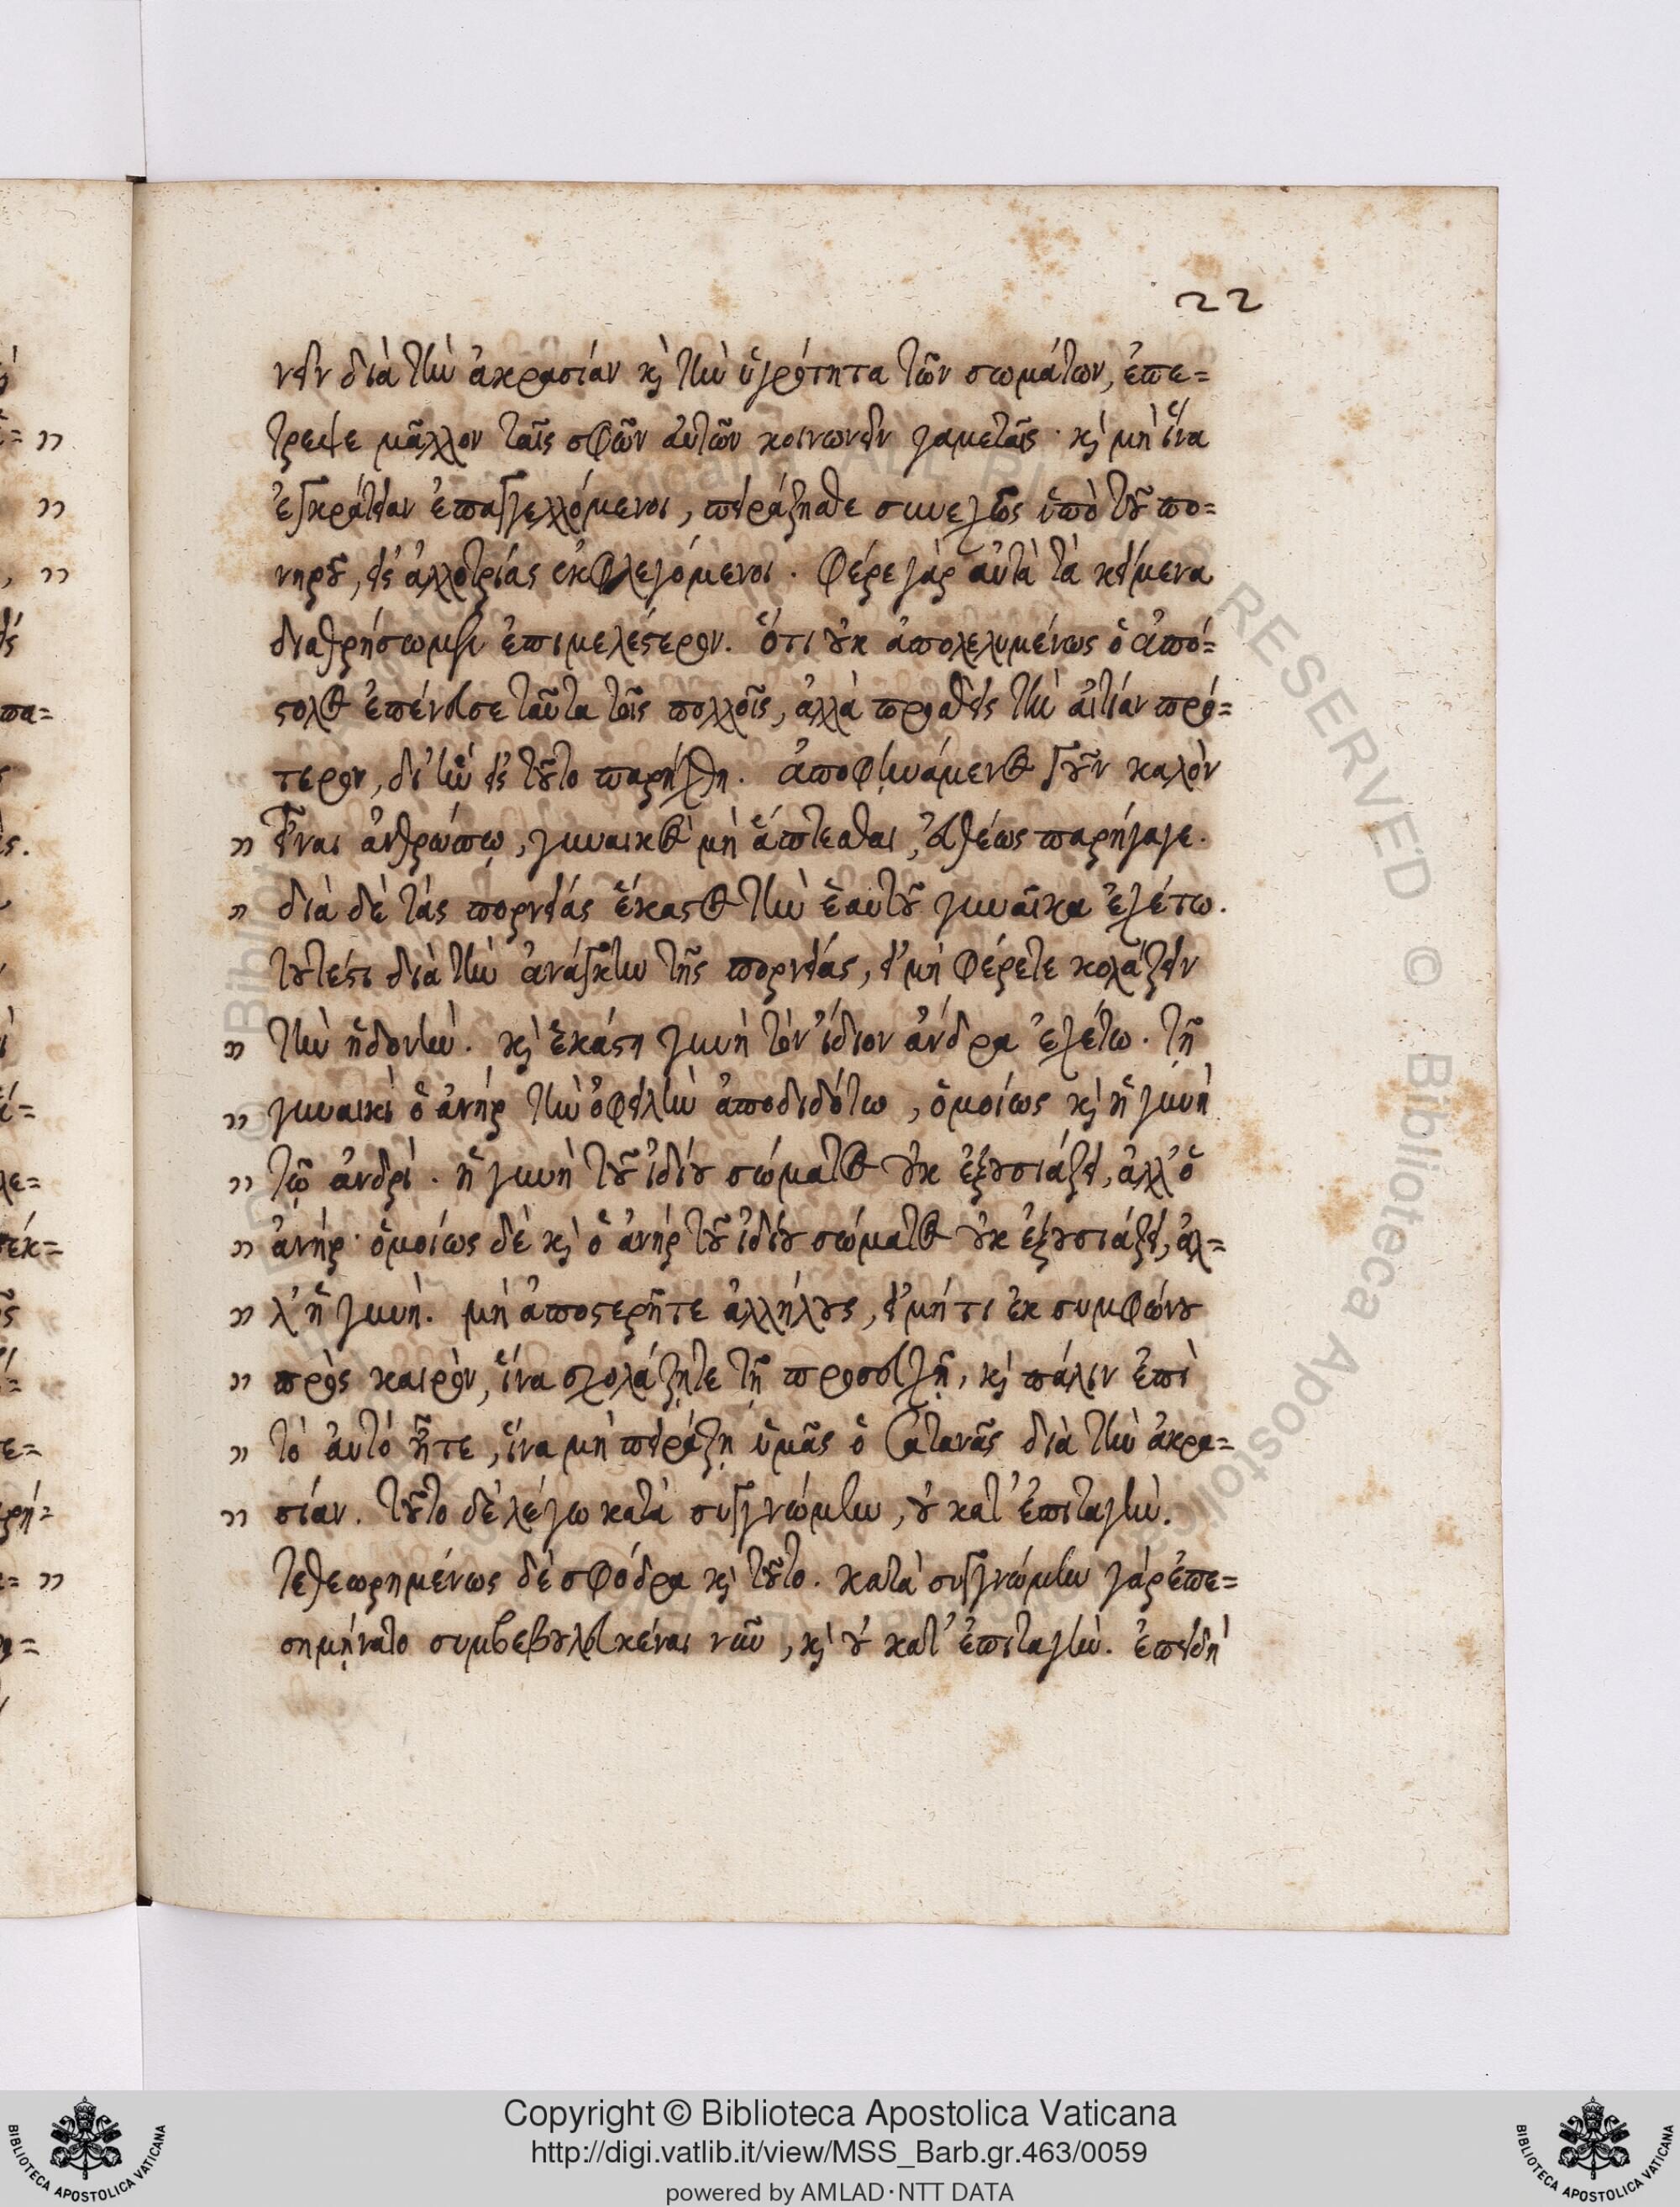 22
νειν διὰ τὴν ἀκρασίαν κ̀ τὴν ὑγρότητα τῶν σωμάτων, ἐπε=
τρεψε μᾶλλον ταῖς σφῶν αὐτῶν κοινωνεῖν γαμεταῖς · κ̀ μὴ ἵνα
ἐγκράτειαν ἐπαγγελλόμενοι, πειράζησθε συνεχῶς ὑπὸ τοῦ πο=
νηροῦ, εἰς ἀλλοτρίας ἐκφλεγόμενοι. Φέρε γὰρ αὐτὰ τὰ κείμενα
διαθρήσωμεν ἐπιμελέστερον. ὅτι οὐκ ἀπολελυμένως ὁ ἀπό=
στολος ἐπένευσε ταῦτα τοῖς πολλοῖς, ἀλλὰ προσθεὶς τὴν αἰτίαν πρό=
τερον, δι' ἣν εἰς τοῦτο παρήχθη. ἀποφῃνάμενος γοῦν καλὸν
" εἶναι ἀνθρώπῳ, γυναικὸς μὴ ἅπτεσθαι, εὐθέως παρήγαγε.
" διὰ δὲ τὰς πορνείας ἕκαστος τὴν ἑαυτοῦ γυναῖκα ἐχέτω.
τουτέστι διὰ τὴν ἀνάγκην τῆς πορνείας, εἰ μὴ φέρετε κολάζειν
" τὴν ἡδονήν. κ̀ ἑκάστη γυνὴ τὸν ἴδιον ἄνδρα ἐχέτω. τῇ
" γυναικὶ ὁ ἀνὴρ τὴν ὀφειλὴν ἀποδιδότω, ὁμοίως κ̀ ἡ γυνὴ
" τῷ ἀνδρί. ἡ γυνὴ τοῦ ἰδίου σώματος οὐκ ἐξουσιάζει, ἀλλ' ὁ
" ἀνήρ · ὁμοίως δὲ κ̀ ὁ ἀνὴρ τοῦ ἰδίου σώματος οὐκ ἐξουσιάζει, ἀλ=
" λ' ἡ γυνή. μὴ ἀποστερῆτε ἀλλήλους, εἰ μή τι ἐκ συμφώνου
" πρὸς καιρὸν, ἵνα σχολάζητε τῇ προσευχῇ, κ̀ πάλιν ἐπὶ
" τὸ αὐτὸ ἦτε, ἵνα μὴ πειράζῃ ὑμᾶς ὁ Σατανᾶς διὰ τὴν ἀκρα=
" σίαν. τοῦτο δὲ λέγω κατὰ συγγνώμην, οὐ κατ' ἐπιταγήν.
τεθεωρημένως δὲ σφόδρα κ̀ τοῦτο. κατὰ συγγνώμην γὰρ ἐπε=
σημῄνατο συμβεβουλευκέναι νῦν, κ̀ οὐ κατ' ἐπιταγήν. ἐπειδὴ
Copyright © Biblioteca Apostolica Vaticana
http://digi.vatlib.it/view/MSS_Barb.gr.463/0059
powered by AMLAD·NTT DATA
BIBLIOTECA APOSTOLICA VATICANA
BIBLIOTECA APOSTOLICA VATICANA